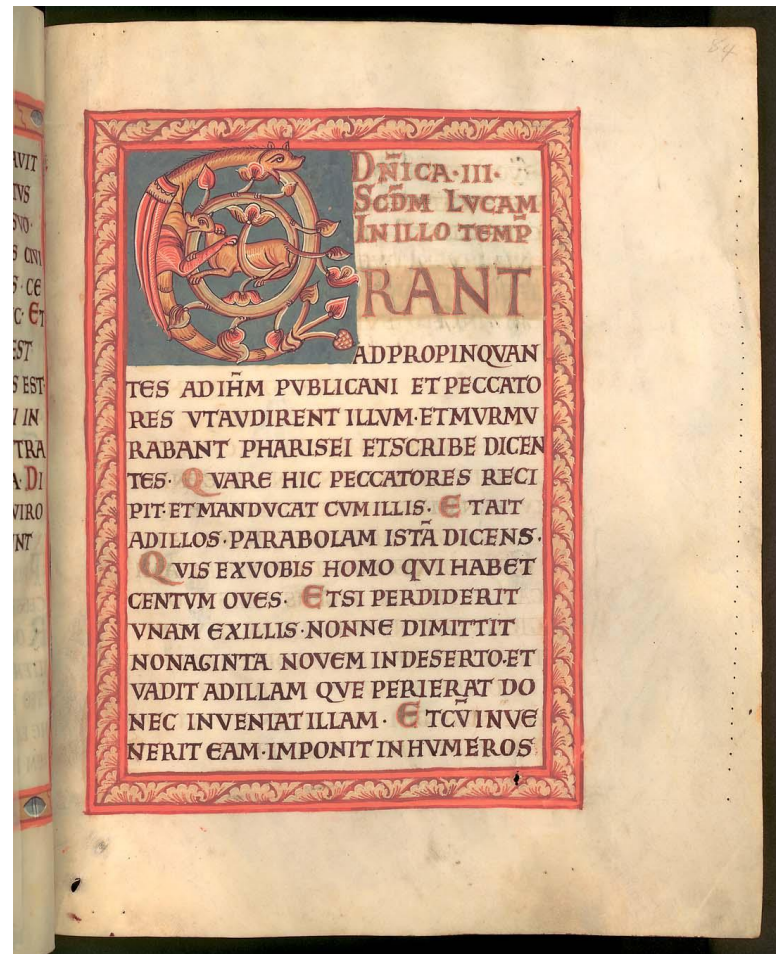 84
AVIT
TVS
SVO·
S CIVI
S·CE
C·ET
EST
S EST·
I IN
TRA
A·DI
VIRO
NT
DN̄ICA·III·
SCD̄M LVCAM
IN ILLO TEMP̄
ERANT
ADPROPINQVAN
TES AD IH̄M PVBLICANI ET PECCATO
RES VT AVDIRENT ILLVM·ET MVRMV
RABANT PHARISEI ET SCRIBE DICEN
TES· QVARE HIC PECCATORES RECI
PIT·ET MANDVCAT CVM ILLIS· ET AIT
AD ILLOS·PARABOLAM ISTĀ DICENS·
QVIS EX VOBIS HOMO QVI HABET
CENTVM OVES· ET SI PERDIDERIT
VNAM EX ILLIS·NONNE DIMITTIT
NONAGINTA NOVEM IN DESERTO·ET
VADIT AD ILLAM QVE PERIERAT DO
NEC INVENIAT ILLAM· ET CV̄ INVE
NERIT EAM·IMPONIT IN HVMEROS